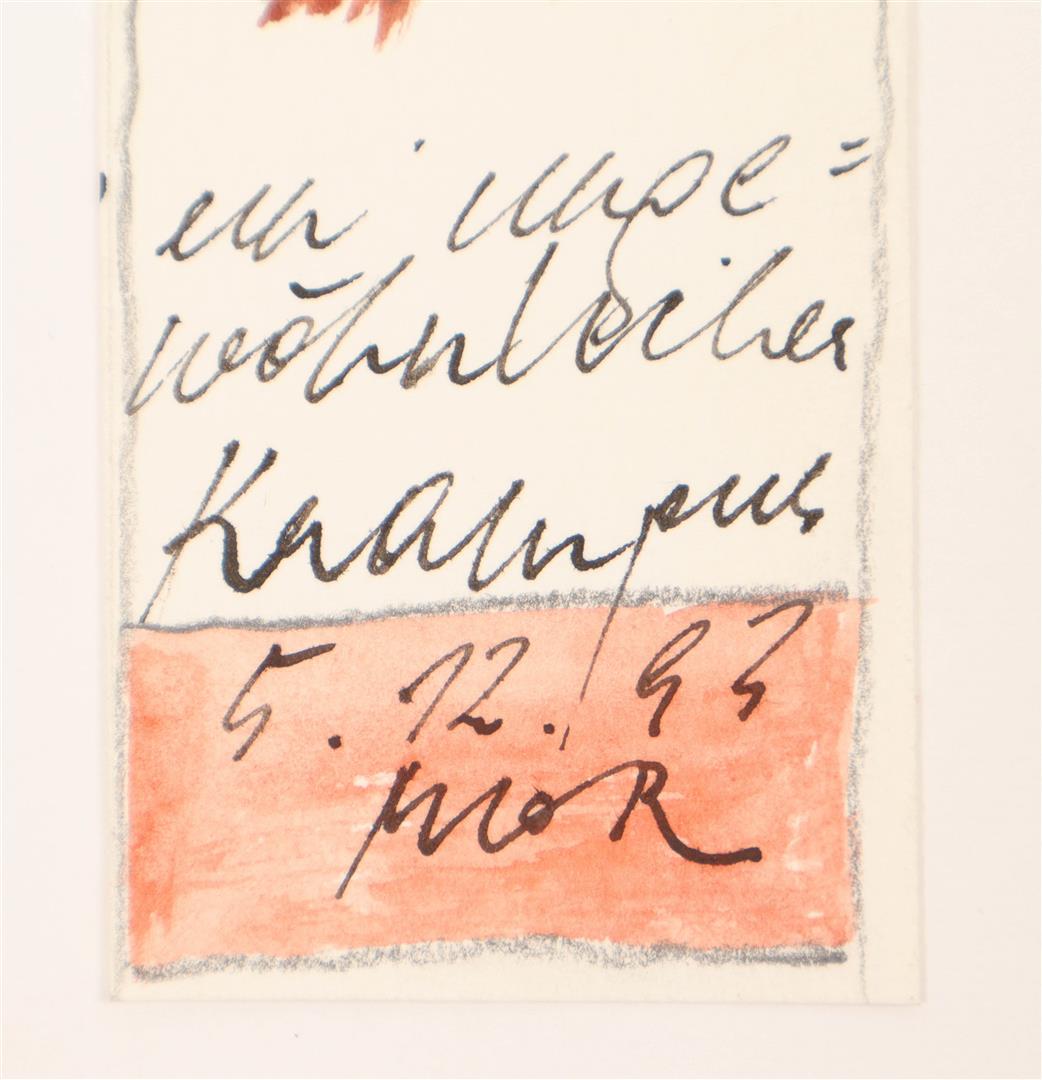 ein unge=
wöhnlicher
Krampus
5. 12. 93
moR